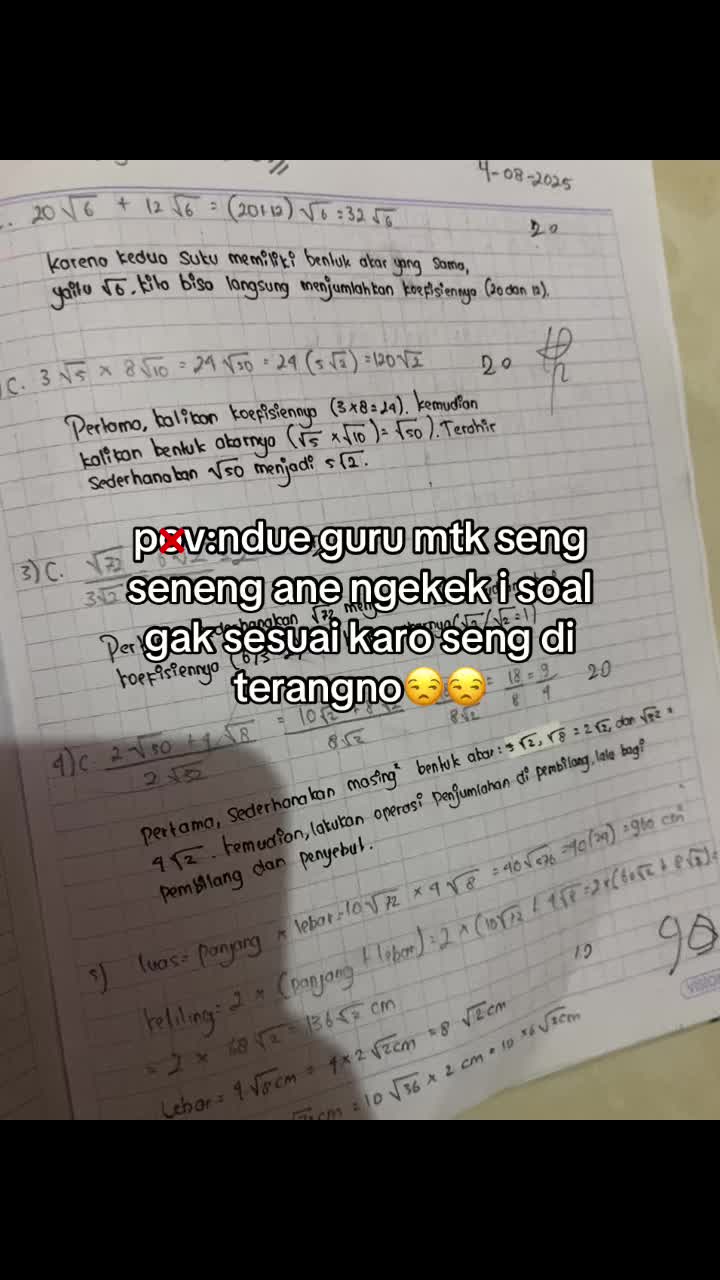 4-08-2025
20√6 + 12√6 = (20+12)√6 = 32√6
20
Karena kedua suku memiliki bentuk akar yang sama,
yaitu √6. kita bisa langsung menjumlahkan koefisiennya (20 dan 12).
C. 3√5 × 8√10 = 24√50 = 24(5√2) = 120√2
20
Pertama, kalikan koefisiennya (3×8=24). kemudian
kalikan bentuk akarnya (√5 × √10) = √50). Terahir
sederhanakan √50 menjadi 5√2.
pov:ndue guru mtk seng
seneng ane ngekek i soal
gak sesuai karo seng di
terangno😒😒
3) C. √72
3√2
koefisiennya
4) C. 2√50 + 4√8 = 10√2 + 8√2 = 18 = 9
2√32 8√2 8√2 8 4
20
pertama, sederhanakan masing² bentuk akar: 5√2, √8 = 2√2, dan √32 =
4√2. kemudian, lakukan operasi penjumlahan di pembilang, lalu bagi
pembilang dan penyebut.
5) luas = panjang × lebar = 10√72 × 4√8 = 40√576 = 40(24) = 960 cm²
keliling = 2 × (panjang + lebar) = 2 × (10√72 + 4√8 = 2×(60√2 + 8√2) =
= 2 × 68√2 = 136√2 cm
10
90
Lebar = 4√8cm = 4×2√2cm = 8√2cm
cm = 10√36 × 2 cm = 10 × 6√2cm